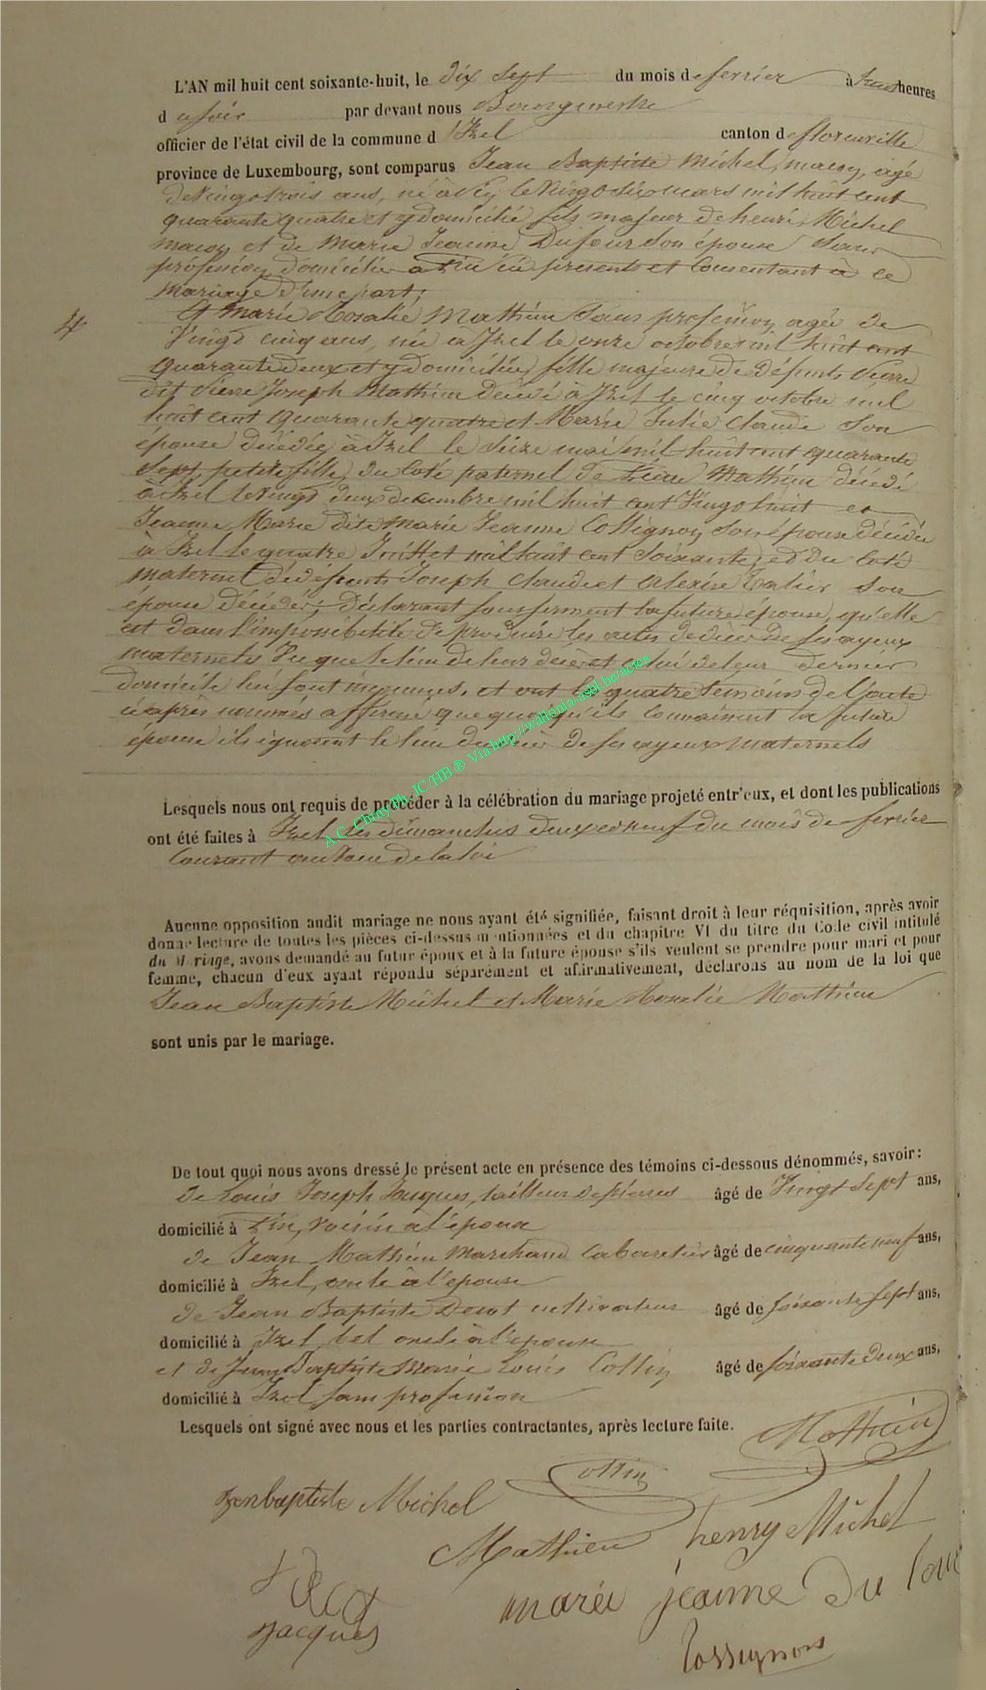 L'AN mil huit cent soixante-huit, le dix sept du mois de ferrier à heures
d u soir par devant nous Bourgmestre
officier de l'état civil de la commune d'Izel canton de florenville
province de Luxembourg, sont comparus Jean Baptiste Michel, maçon, agé
de vingt trois ans, né à le vingt six mars mil huit cent
quarante quatre et y domicilié fils majeur de henri Michel
maçon et de Marie Jeanne Dufour son épouse sans
profession domiciliés à ici présents et consentant à ce
mariage d'une part;
4
Et marie Rosalie Mathieu sans profession agée de
Vingt cinq ans, née à Izel le onze octobre mil huit cent
quarante deux et y domiciliée, fille majeure de défunts Pierre
dit Pierre Joseph Mathieu décédé à Izel le cinq octobre mil
huit cent quarante quatre et Marie Julie Claude son
épouse décédée à Izel le seize mai mil huit cent quarante
sept, petite fille du coté paternel de Mathieu décédé
à Izel le vingt deux décembre mil huit cent vingt huit et
Jeanne Marie dite Marie Jeanne Collignon son épouse décédée
à Izel le quatre Juillet mil huit cent soixante, et du coté
maternel de défunts Joseph Claude et Alexise son
épouse décédés, déclarant sous serment la future épouse, qu'elle
est dans l'impossibilité de produire les actes de décès de ses ayeux
maternels vu que le lieu de leur décès et celui de leur dernier
domicile lui sont inconnus, et ont les quatre témoins de l'acte
ci après nommés affirmé que quoiqu'ils connaissent la future
épouse ils ignorent le lieu de décès de ses ayeux maternels
A.C. Chiny Ph. JC/HB ® Via http://wallonia-asbl.be/actes
Lesquels nous ont requis de procéder à la célébration du mariage projeté entr'eux, et dont les publications
ont été faites à Izel les dimanches deux et neuf du mois de ferrier
courant au vœu de la loi
Aucune opposition audit mariage ne nous ayant été signifiée, faisant droit à leur réquisition, après avoir
donné lecture de toutes les pièces ci-dessus mentionnées et du chapitre VI du titre du Code civil intitulé
du Mariage, avons demandé au futur époux et à la future épouse s'ils veulent se prendre pour mari et pour
femme, chacun d'eux ayant répondu séparément et affirmativement, déclarons au nom de la loi que
Jean Baptiste Michel et Marie Rosalie Mathieu
sont unis par le mariage.
De tout quoi nous avons dressé le présent acte en présence des témoins ci-dessous dénommés, savoir:
de Louis Joseph Jacques, tailleur de pierres âgé de Vingt Sept ans,
domicilié à voisin à l'époux
de Jean Mathieu Marchand cabaretier âgé de cinquante neuf ans,
domicilié à Izel, oncle à l'épouse
de Jean Baptiste cultivateur âgé de soixante sept ans,
domicilié à Izel, bel oncle à l'épouse
et de Jean Baptiste Marie Louis Collin âgé de soixante deux ans,
domicilié à Izel sans profession
Lesquels ont signé avec nous et les parties contractantes, après lecture faite.
Mathieu
Collin
Jenbaptiste Michel
Mathieu henry Michel
marie jeanne Du four
Jacques
Rossignon